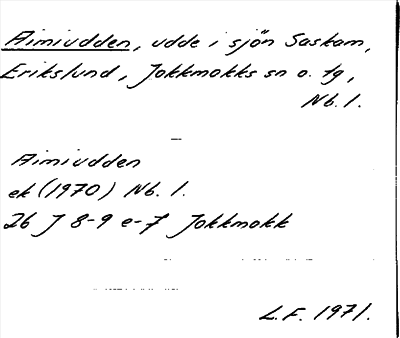 Aimiudden, udde i sjön Saskam,
Erikslund, Jokkmokks sn o. tg,
Nb. l.
—
Aimiudden
ek (1970) Nb. l.
26 J 8-9 e-f Jokkmokk
L.F. 1971.